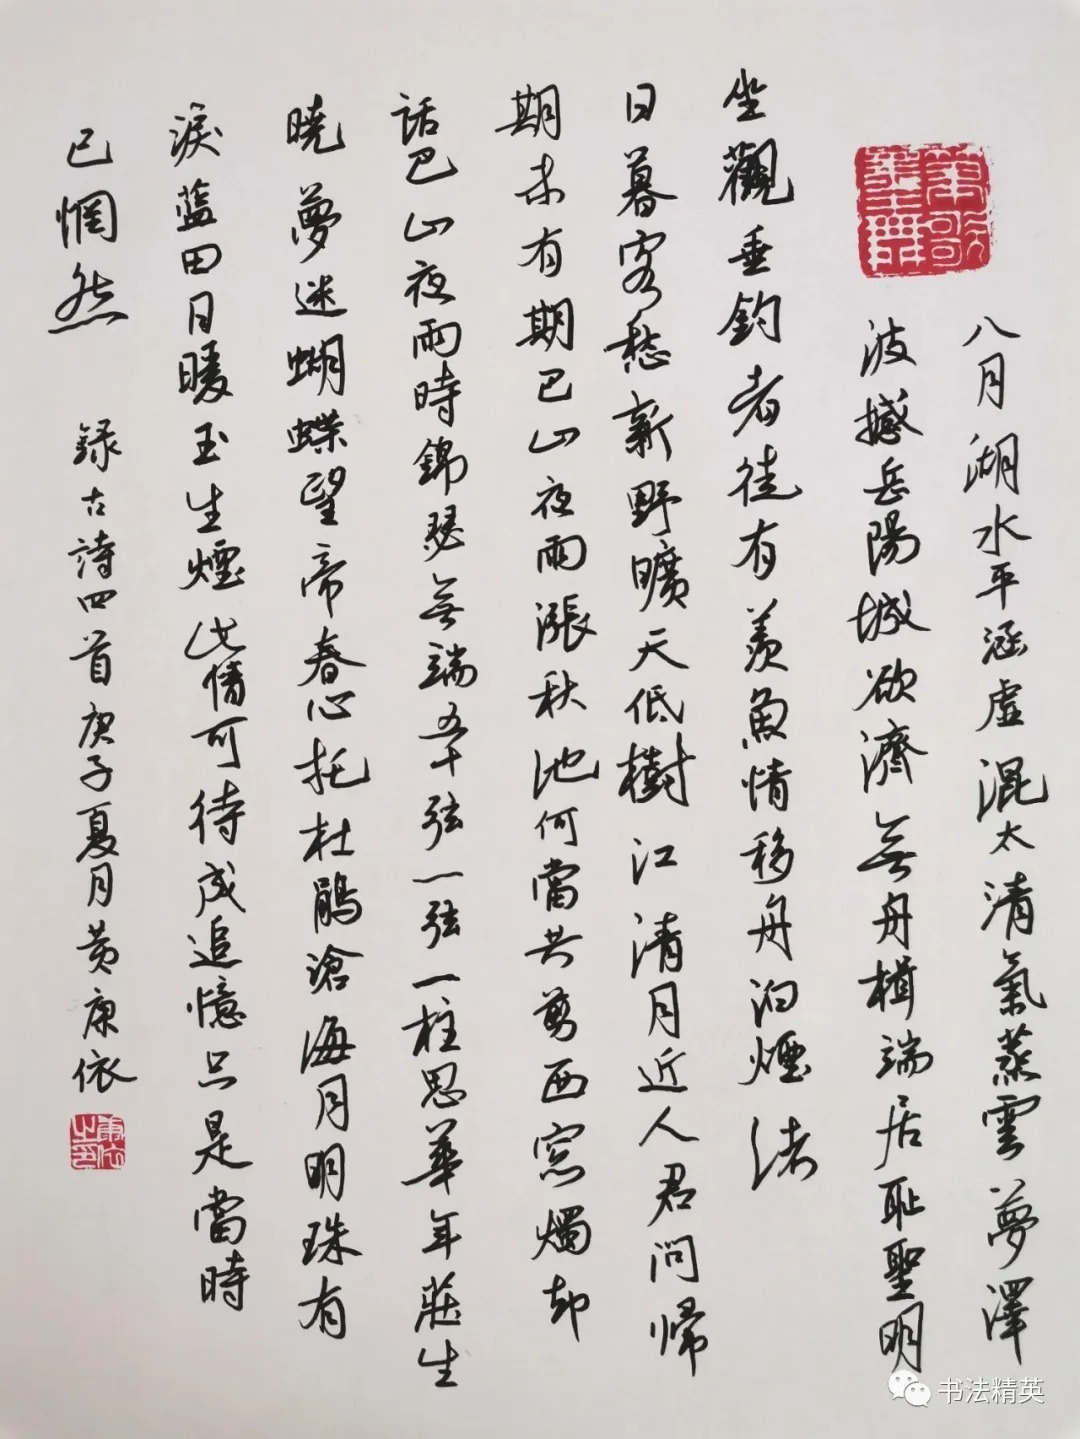 筆歌墨舞
八月湖水平涵虛混太清氣蒸雲夢澤
波撼岳陽城欲濟無舟楫端居耻聖明
坐觀垂釣者徒有羨魚情移舟泊煙渚
日暮客愁新野曠天低樹江清月近人君問歸
期未有期巴山夜雨漲秋池何當共剪西窓燭却
話巴山夜雨時錦瑟無端五十弦一弦一柱思華年莊生
曉夢迷蝴蝶望帝春心托杜鵑滄海月明珠有
淚藍田日暖玉生煙此情可待成追憶只是當時
已惘然 録古詩四首庚子夏月黄康依
康依之印
书法精英